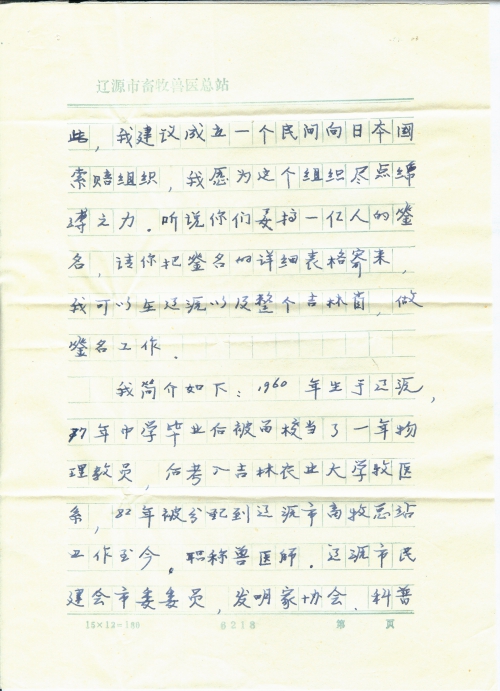 辽源市畜牧兽医总站
此，我建议成立一个民间向日本国
索赔组织，我愿为这个组织尽点绵
薄之力．听说你们要搞一亿人的签
名，请你把签名的详细表格寄来，
我可以在辽源以及整个吉林省，做
签名工作．
我简介如下：1960年生于辽源，
77年中学毕业后被留校当了一年物
理教员，后考入吉林农业大学牧医
系，82年被分配到辽源市畜牧总站
工作至今。职称兽医师．辽源市民
建会市委委员，发明家协会．科普
15×12=180 8218 第 页